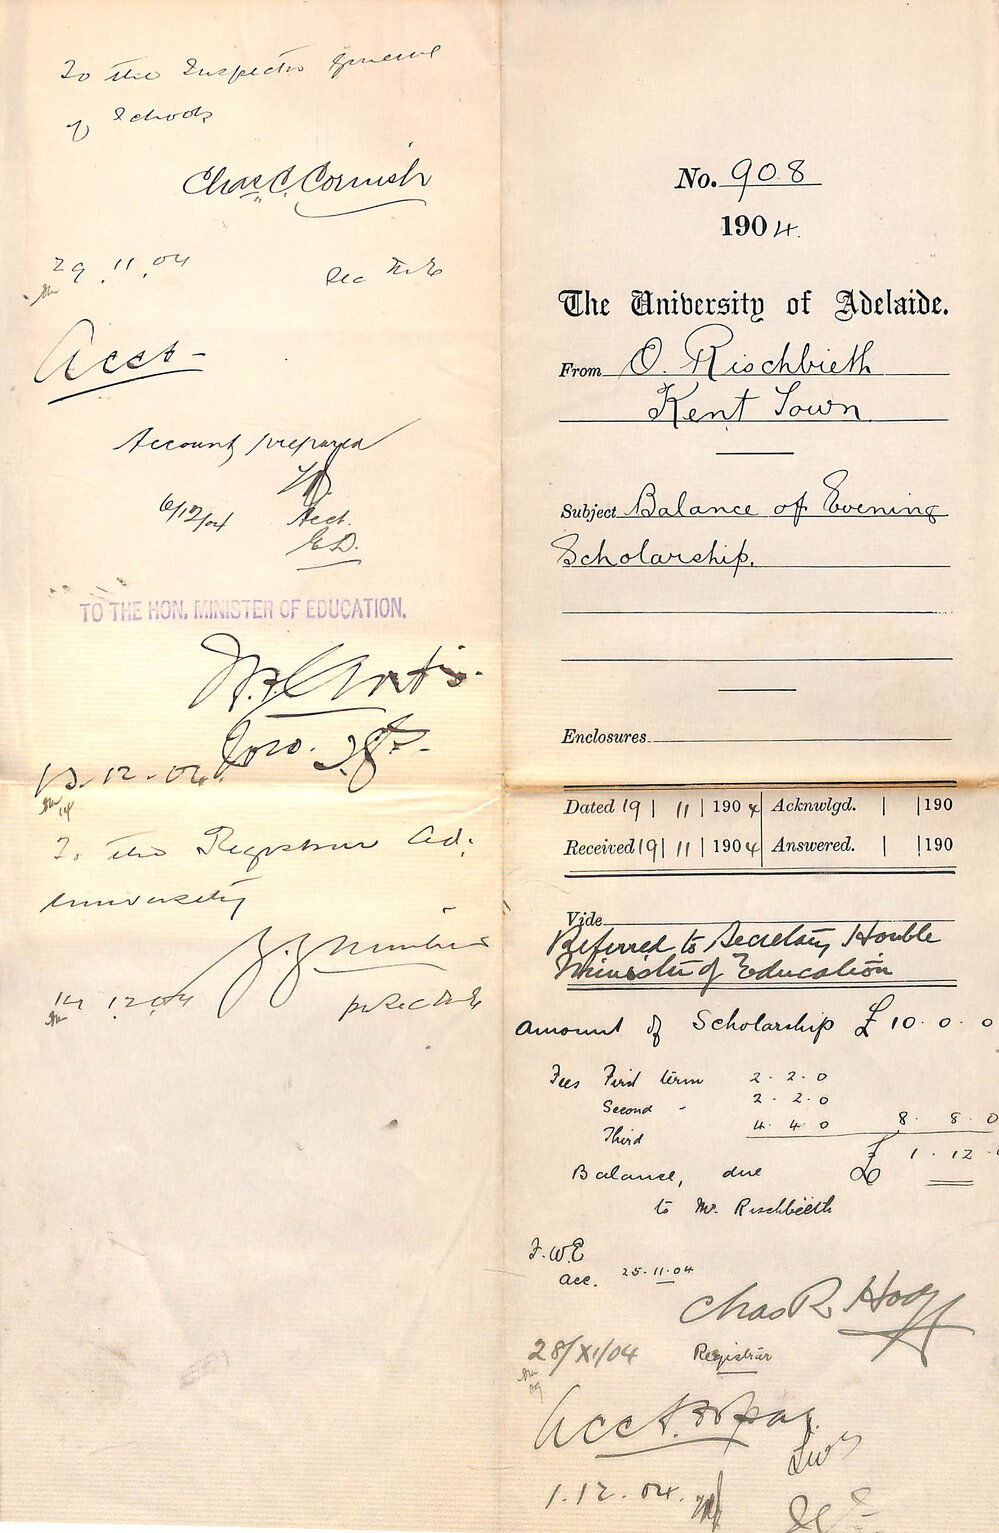 To the Inspector General
of Schools
Chas. C. Cornish
29.11.04
Sec M.E
Acct
Account prepared
6/12/04
Acct.
E.D.
TO THE HON. MINISTER OF EDUCATION.
13.12.04
To the Registrar Ad:
University
14 12 04
No. 908
1904.
The University of Adelaide.
From O. Rischbieth
Kent Town
Subject Balance of Evening
Scholarship.
Enclosures
Dated 19 | 11 | 1904 Acknwlgd. | | 190
Received 19 | 11 | 1904 Answered. | | 190
Vide
Referred to Secretary Honble
Minister of Education
Amount of Scholarship £ 10. 0. 0
Fees First term 2. 2. 0
Second " 2. 2. 0
Third 4. 4. 0 8. 8. 0
Balance, due £ 1. 12.
to Mr. Rischbieth
F.W.E
acc. 25.11.04
Chas R Hodge
28/XI/04 Registrar
1.12.04.